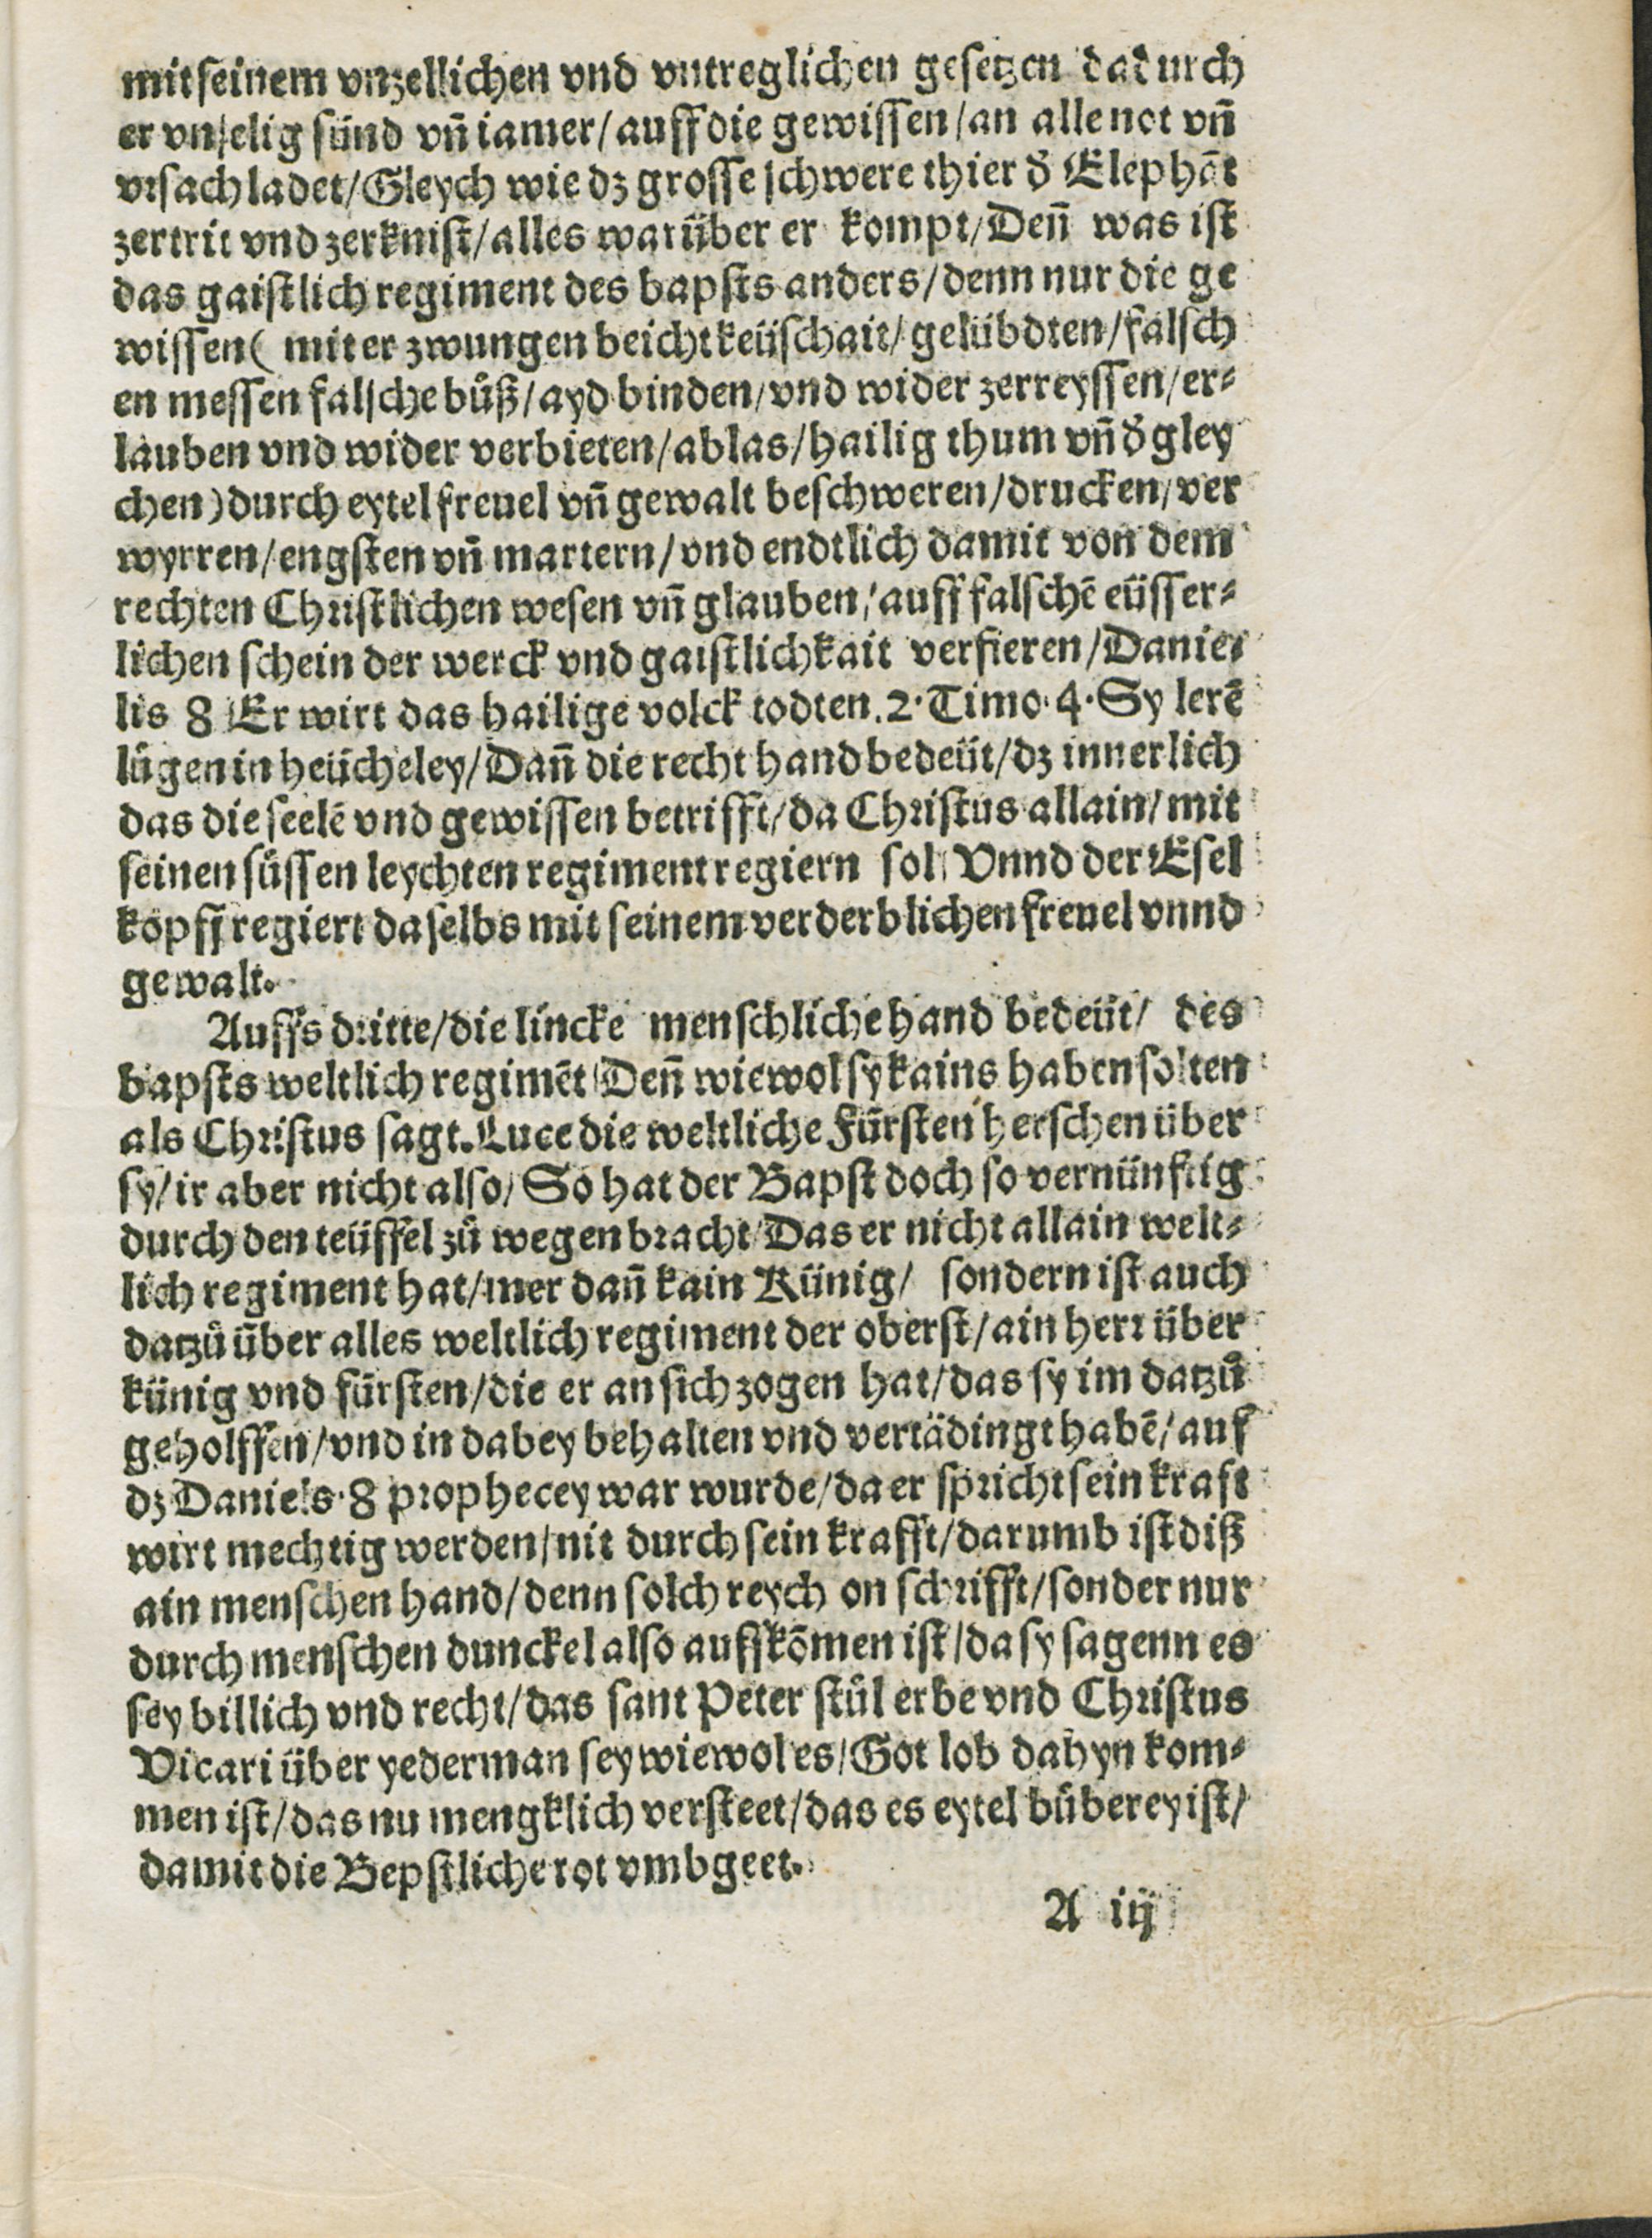 mit seinem vnzellichen vnd vntreglichen gesetzen dadurch
er vnselig sünd vñ iamer/auff die gewissen/an alle not vñ
vrsach ladet/Gleych wie dz grosse schwere thier d̕ Elephāt
zertrit vnd zerknist/alles warüber er kompt/Deñ was ist
das gaistlich regiment des bapsts anders/denn nur die ge
wissen( mit er zwungen beicht keüschait/gelübdten/falsch
en messen falsche bůß/ayd binden/vnd wider zerreyssen/er⸗
lauben vnd wider verbieten/ablas/hailig thum vñ d̕ gley
chen) durch eytel freuel vñ gewalt beschweren/drucken/ver
wyrren/engsten vñ martern/vnd endtlich damit von dem
rechten Christlichen wesen vñ glauben/auff falschē eüsser⸗
lichen schein der werck vnd gaistlichkait verfieren/Danie⸗
lis 8 Er wirt das hailige volck todten.2.Timo.4.Sy lerē
lügen in heücheley/Dañ die recht hand bedeüt/dz innerlich
das die seelē vnd gewissen betrifft/da Christus allain/mit
seinen süssen leychten regiment regiern sol/Vnnd der Esel
kopff regiert daselbs mit seinem verderblichen freuel vnnd
gewalt.
Auffs dritte/die lincke menschliche hand bedeüt/ des
bapsts weltlich regimēt/Deñ wiewol sy kains haben solten
als Christus sagt.Luce die weltliche Fürsten herschen über
sy/ir aber nicht also/So hat der Bapst doch so vernünftig
durch den teüffel zů wegen bracht/Das er nicht allain welt⸗
lich regiment hat/mer dañ kain Künig/ sondern ist auch
datzů über alles weltlich regiment der oberst/ain herr über
künig vnd fürsten/die er an sich zogen hat/das sy im datzů
geholffen/vnd in dabey behalten vnd vertädingt habē/auf
dz Daniels.8 prophecey war wurde/da er spricht sein kraft
wirt mechtig werden/nit durch sein krafft/darumb ist diß
ain menschen hand/denn solch reych on schrifft/sonder nur
durch menschen dunckel also auffkōmen ist/da sy sagenn es
sey billich vnd recht/das sant Peter stůl erbe vnd Christus
Vicari über yederman sey wiewol es/Got lob dahyn kom⸗
men ist/das nu mengklich versteet/das es eytel bůberey ist/
damit die Bepstliche rot vmbgeet.
A iij